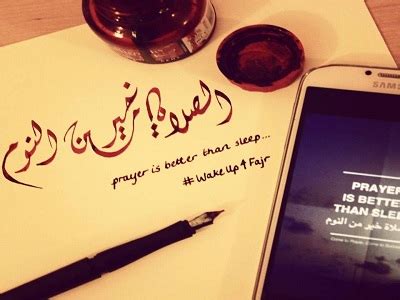 الصلاة خير من النوم
prayer is better than sleep...
#WakeUp4Fajr
PRAYER
IS BETTE
THAN SLEE
صلاة خير من النوم